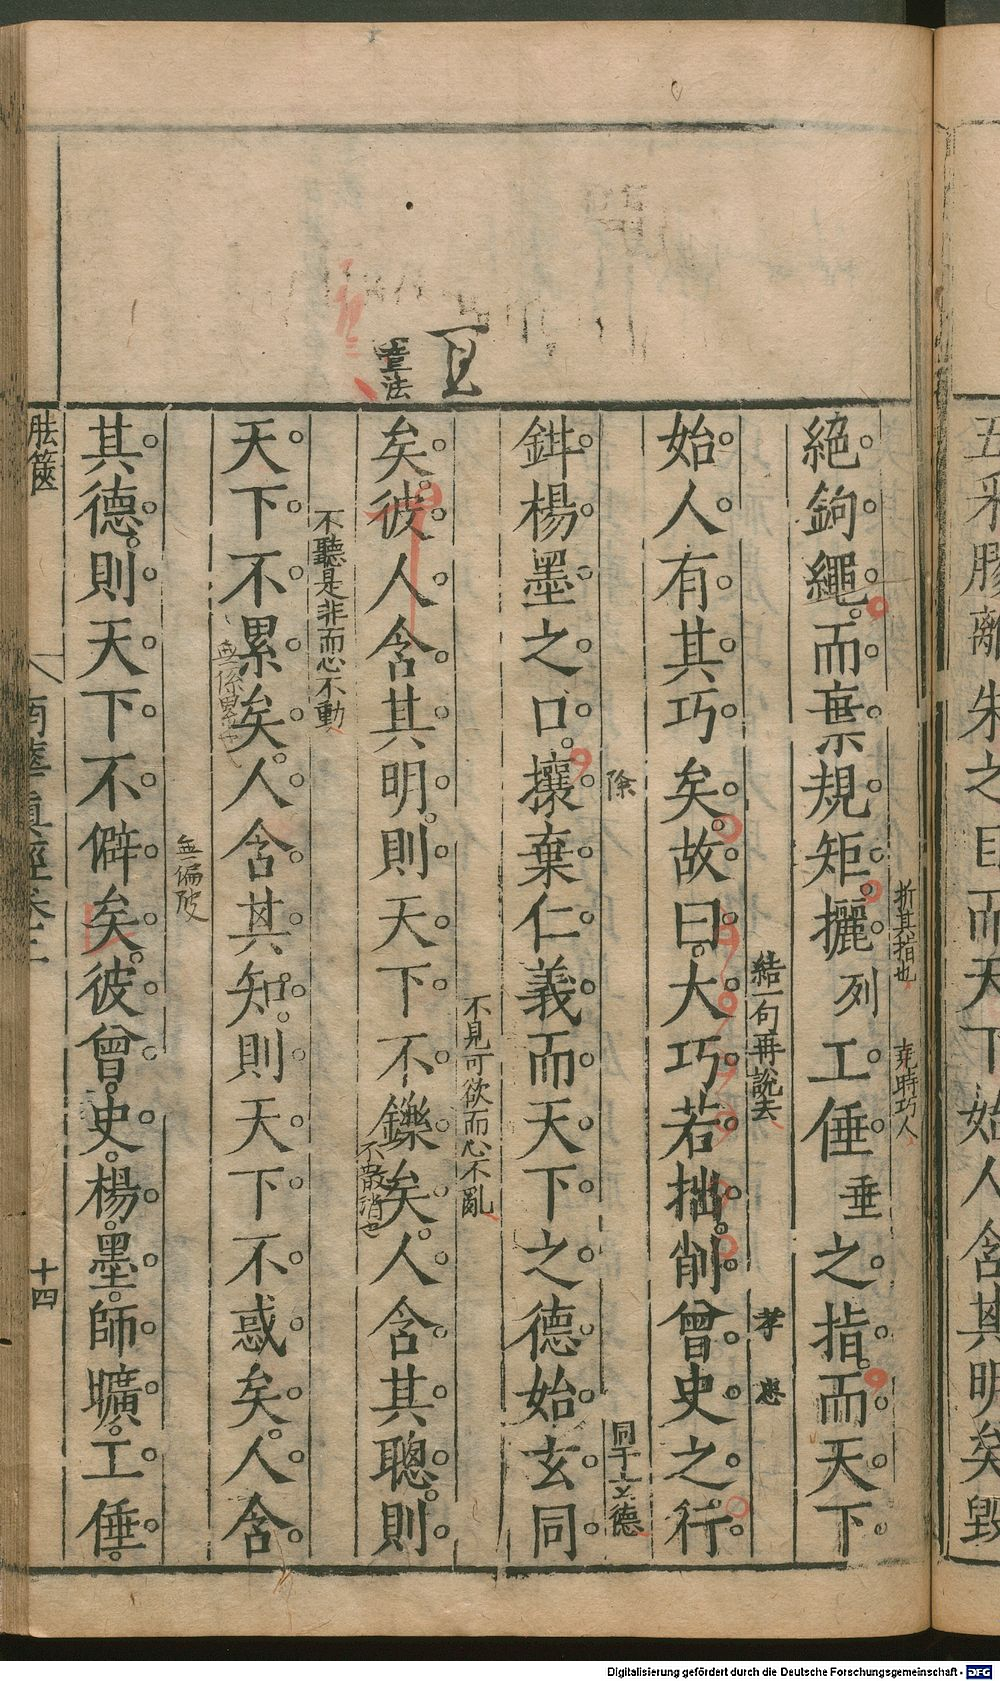 五采膠離朱之目而天下始人含其明矣毀
章法
絕鉤繩。而棄規矩。攦列工倕垂之指。而天下
折其指也
堯時巧人
始人有其巧矣。故曰。大巧若拙。削曾史之行
結一句再說去
孝 忠
鉗楊墨之口。攘棄仁義而天下之德始玄同
除
同于玄德
矣。彼人含其明。則天下不鑠矣。人含其聰。則
不見可欲而心不亂
不散消也
天下不累矣。人含其知。則天下不惑矣。人含
不聽是非而心不動
無係累也
其德。則天下不僻矣。彼曾。史。楊。墨。師曠。工倕。
無偏陂
胠篋
南華真經卷三
十四
Digitalisierung gefördert durch die Deutsche Forschungsgemeinschaft - DFG